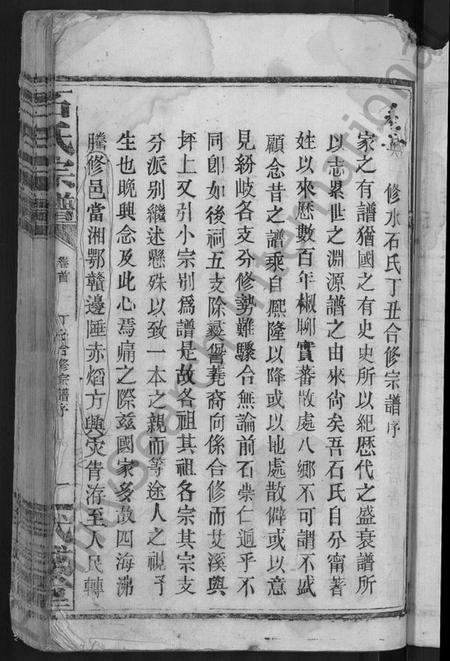 修水石氏丁丑合修宗譜序
家之有譜猶國之有史史所以紀歷代之盛衰譜所
以志累世之淵源譜之由來尚矣吾石氏自分甯著
姓以來歷數百年椒聊實蕃散處八鄉不可謂不盛
顧念昔之譜乘自熙隆以降或以地處散僻或以意
見紛岐各支分修勢難驟合無論前石崇仁迥乎不
同卽如後祠五支除裔向係合修而艾溪與
坪上又引小宗別爲譜是故各祖其祖各宗其宗支
分派別繼述懸殊以致一本之親而等途人之視予
生也晚興念及此心焉痛之際茲國家多故四海沸
騰修邑當湘鄂贛邊陲赤熖方興灾眚洊至人民轉
石氏宗譜
卷首
丁丑合修宗譜序
一